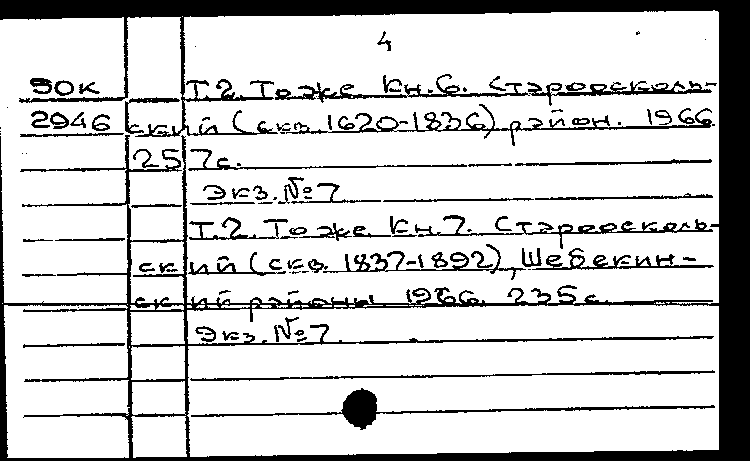 4
50к Т.2. То же Кн.6. Староосколь-
2946 ский (скв. 1620-1836) район. 1966
257с.
Экз. №7
Т.2. То же. Кн.7. Староосколь-
ский (скв. 1837-1892), Шебекин-
ский районы 1966. 235с.
Экз. №7.